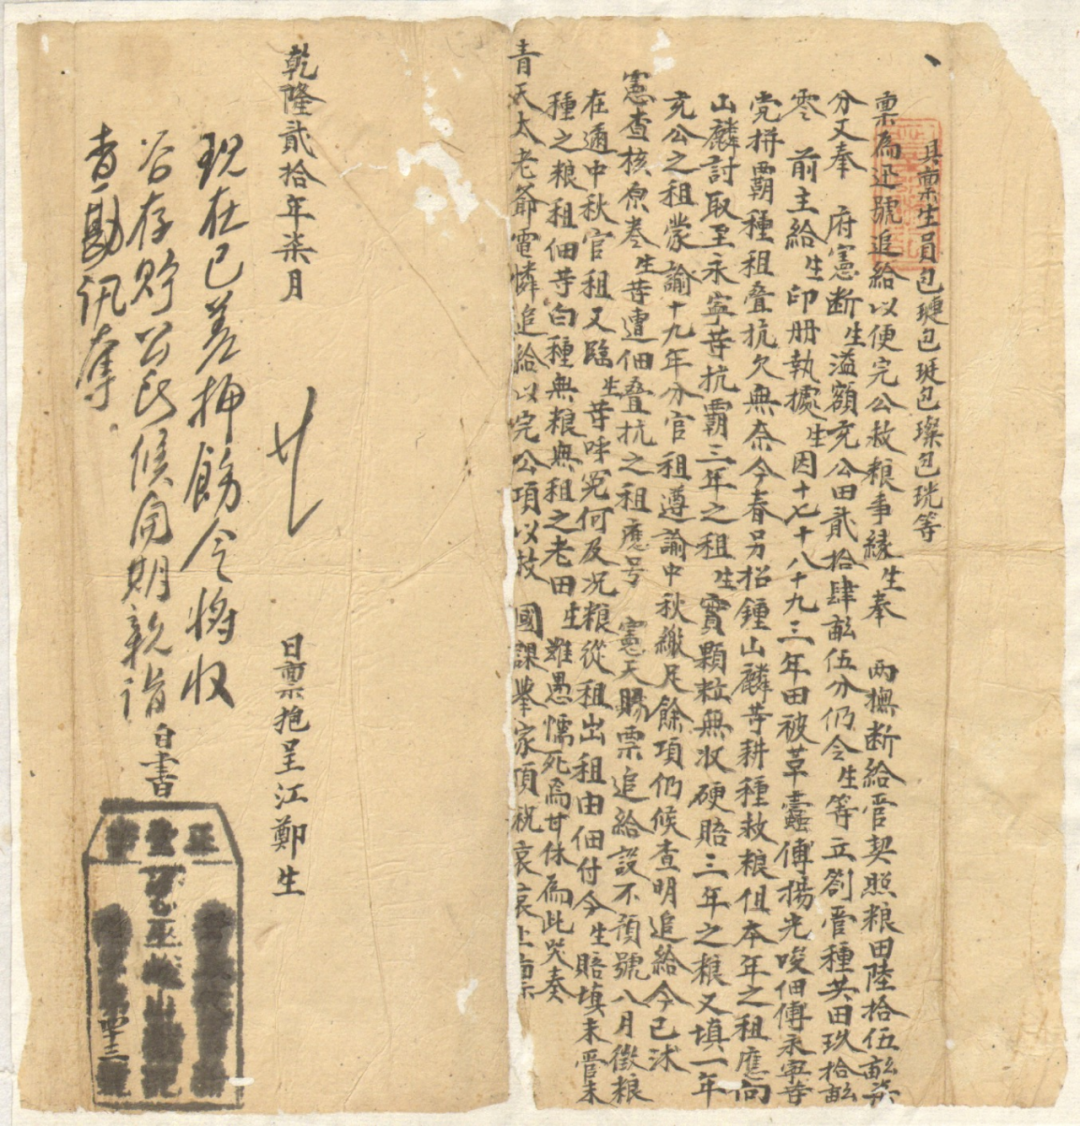 具禀生員包璉包珽包璨包珖等
禀為迅號追給以便完公救粮事緣生奉 两撫断給晋契照粮田陸拾伍畝柒
分又奉 府憲断生溢額充公田貳拾肆畝伍分仍令生等立劄晋種共田玖拾畝
零 前主給生印册執據生因十七十八十九三年田被草蠹傅揚光唆佃傅永寧等
党拼霸種租叠抗欠無奈今春另招鍾山麟等耕種救粮但本年之租應向
山麟討取至永寧等抗霸三年之租生實顆粒無收硬賠三年之粮又填一年
充公之租蒙諭十九年分官租遵諭中秋繳足餘項仍候查明追給今已沐
憲查核原卷生等遭佃叠抗之租應号 憲天賜票追給設不預號八月徵粮
在邇中秋官租又臨生等呼冤何及况粮從租出租由佃付今生賠填未晋未
種之粮租佃等白種無粮無租之老田生雖愚懦死焉甘休為此哭奏
青天太老爺電憐追給以完公項以救 國課舉家頂祝哀哀上禀
乾隆貳拾年柒月 廿 日禀抱呈江鄭生
現在已差押飭令将收
谷存貯公所候開期親詣
查勘訊奪
自書